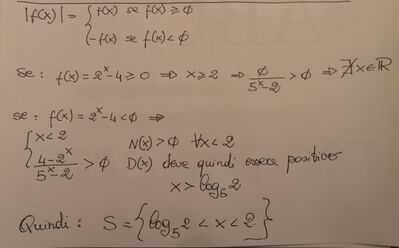 |f(x)| = { f(x) se f(x) ⩾ 0
{ -f(x) se f(x) < 0
se: f(x) = 2^x - 4 ⩾ 0 ⇒ x ⩾ 2 ⇒ 0/(5^x - 2) > 0 ⇒ ∄ x ∈ ℝ
se: f(x) = 2^x - 4 < 0 ⇒
{ x < 2 N(x) > 0 ∀x < 2
{ (4 - 2^x)/(5^x - 2) > 0 D(x) deve quindi essere positivo
x > log₅2
Quindi: S = { log₅2 < x < 2 }